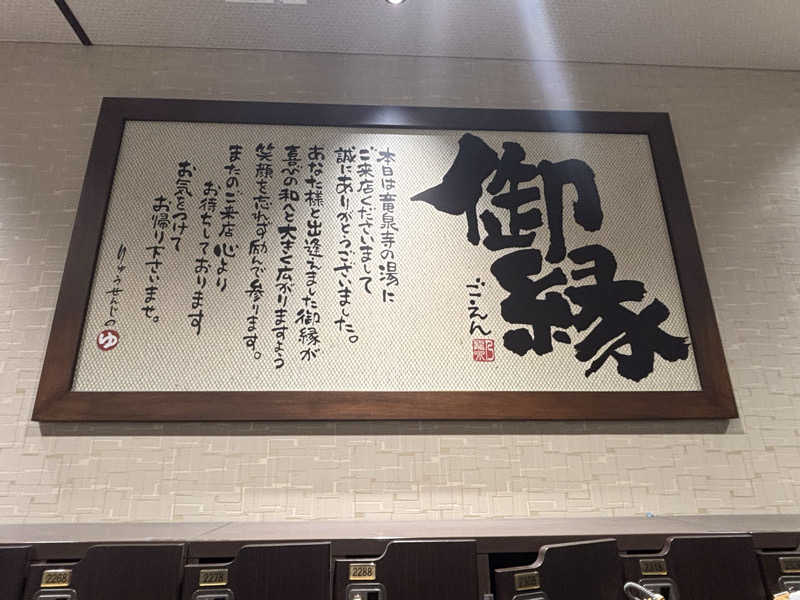 御縁
ごえん
本日は竜泉寺の湯に
ご来店くださいまして
誠にありがとうございました。
あなた様と出逢えました御縁が
喜びの和へと大きく広がりますよう
笑顔を忘れず励んで参ります。
またのご来店心より
お待ちしております
お気をつけて
お帰り下さいませ。
りゅうせんじの
ゆ
2268
2278
2288
2308
2318